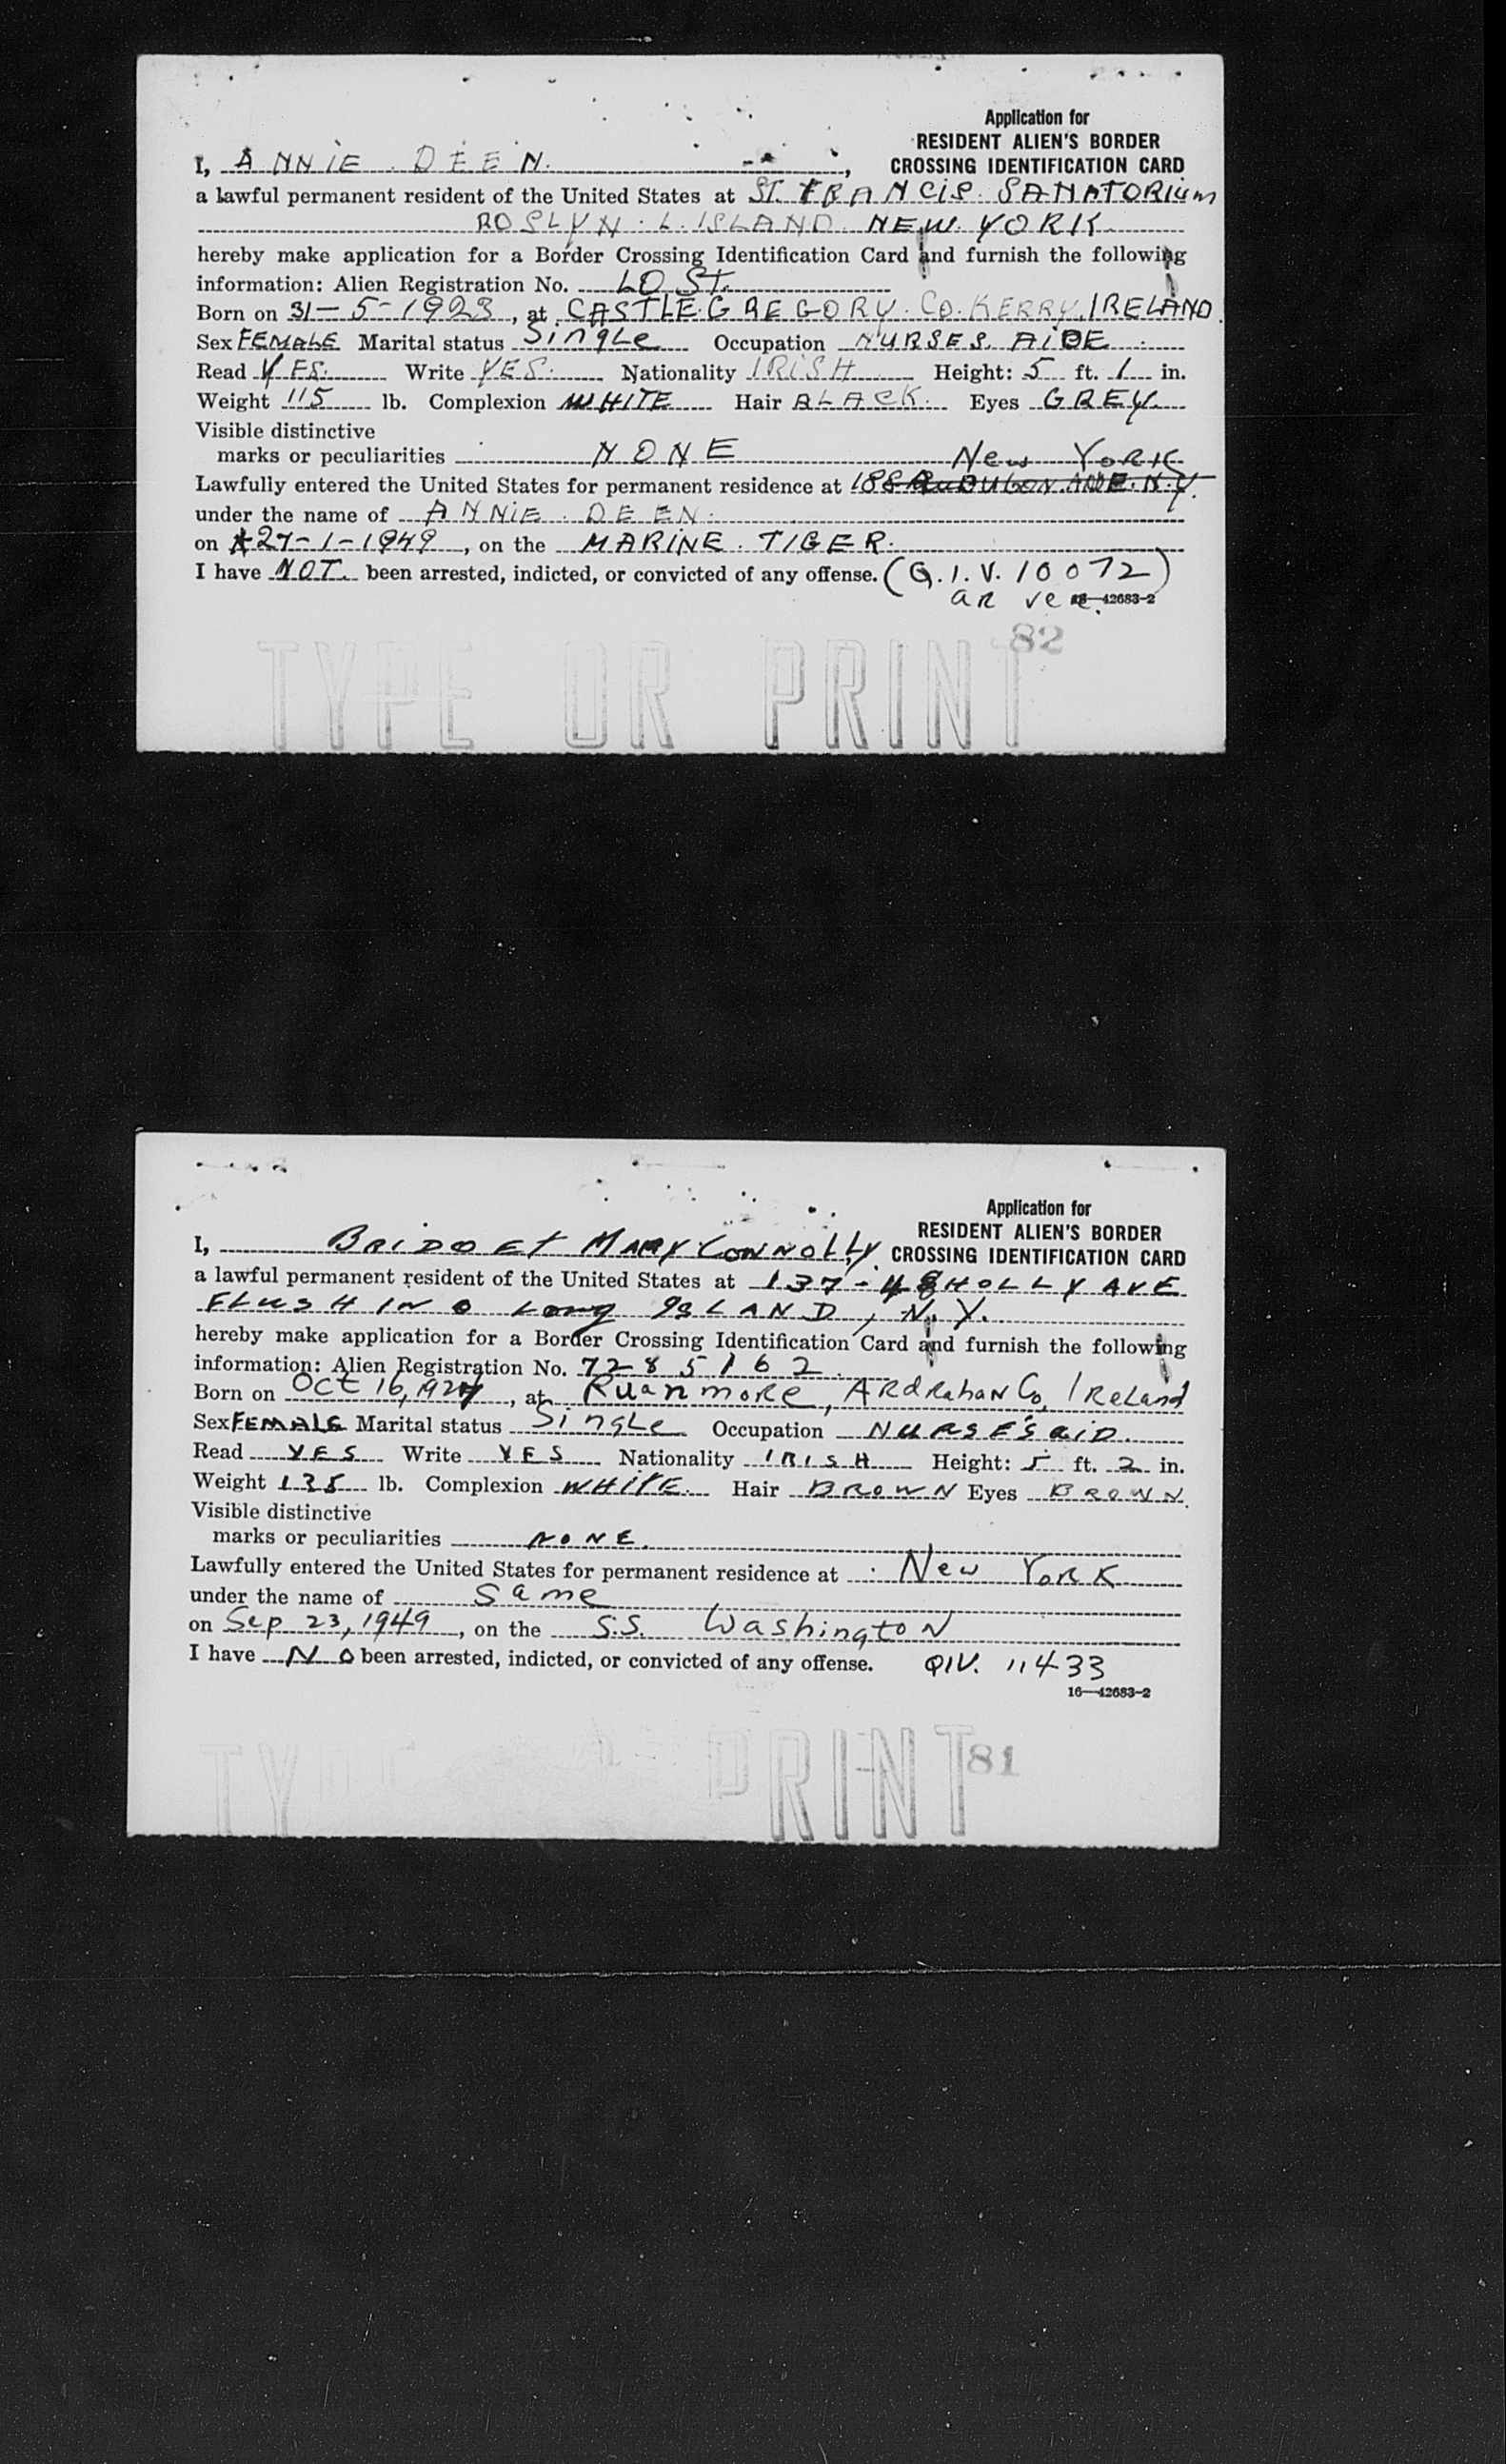 Application for
RESIDENT ALIEN'S BORDER
I, ANNIE DEEN, CROSSING IDENTIFICATION CARD
a lawful permanent resident of the United States at ST. FRANCIS SANATORIUM
ROSLYN. L. ISLAND. NEW. YORK
hereby make application for a Border Crossing Identification Card and furnish the following
information: Alien Registration No. LOST.
Born on 31-5-1923, at CASTLEGREGORY. CO. KERRY, IRELAND.
Sex FEMALE Marital status Single Occupation NURSES. AIDE
Read YES. Write YES. Nationality IRISH Height: 5 ft. 1 in.
Weight 115 lb. Complexion WHITE Hair BLACK. Eyes GREY.
Visible distinctive
marks or peculiarities NONE New York
Lawfully entered the United States for permanent residence at 188 AUDUBON AVE. N.Y.
under the name of ANNIE. DEEN.
on 27-1-1949, on the MARINE. TIGER.
I have NOT. been arrested, indicted, or convicted of any offense. (Q.I.V. 10072)
aR vee. 16—42683-2
82
TYPE OR PRINT
Application for
RESIDENT ALIEN'S BORDER
I, BRIDGET MARY CONNOLLY, CROSSING IDENTIFICATION CARD
a lawful permanent resident of the United States at 137-48 HOLLY AVE
FLUSHING Long ISLAND, N.Y.
hereby make application for a Border Crossing Identification Card and furnish the following
information: Alien Registration No. 7285162.
Born on OCt 16, 1927, at Ruanmore, ARdRahan Co, IReland
Sex FEMALE Marital status Single Occupation NURSE'S aiD.
Read YES Write YES Nationality IRISH Height: 5 ft. 2 in.
Weight 135 lb. Complexion WHITE. Hair BROWN Eyes BROWN.
Visible distinctive
marks or peculiarities NONE.
Lawfully entered the United States for permanent residence at New YoRK
under the name of Same
on Sep 23, 1949, on the S.S. WashingtoN
I have NO been arrested, indicted, or convicted of any offense. QIV. 11433
16—42683-2
81
PRINT